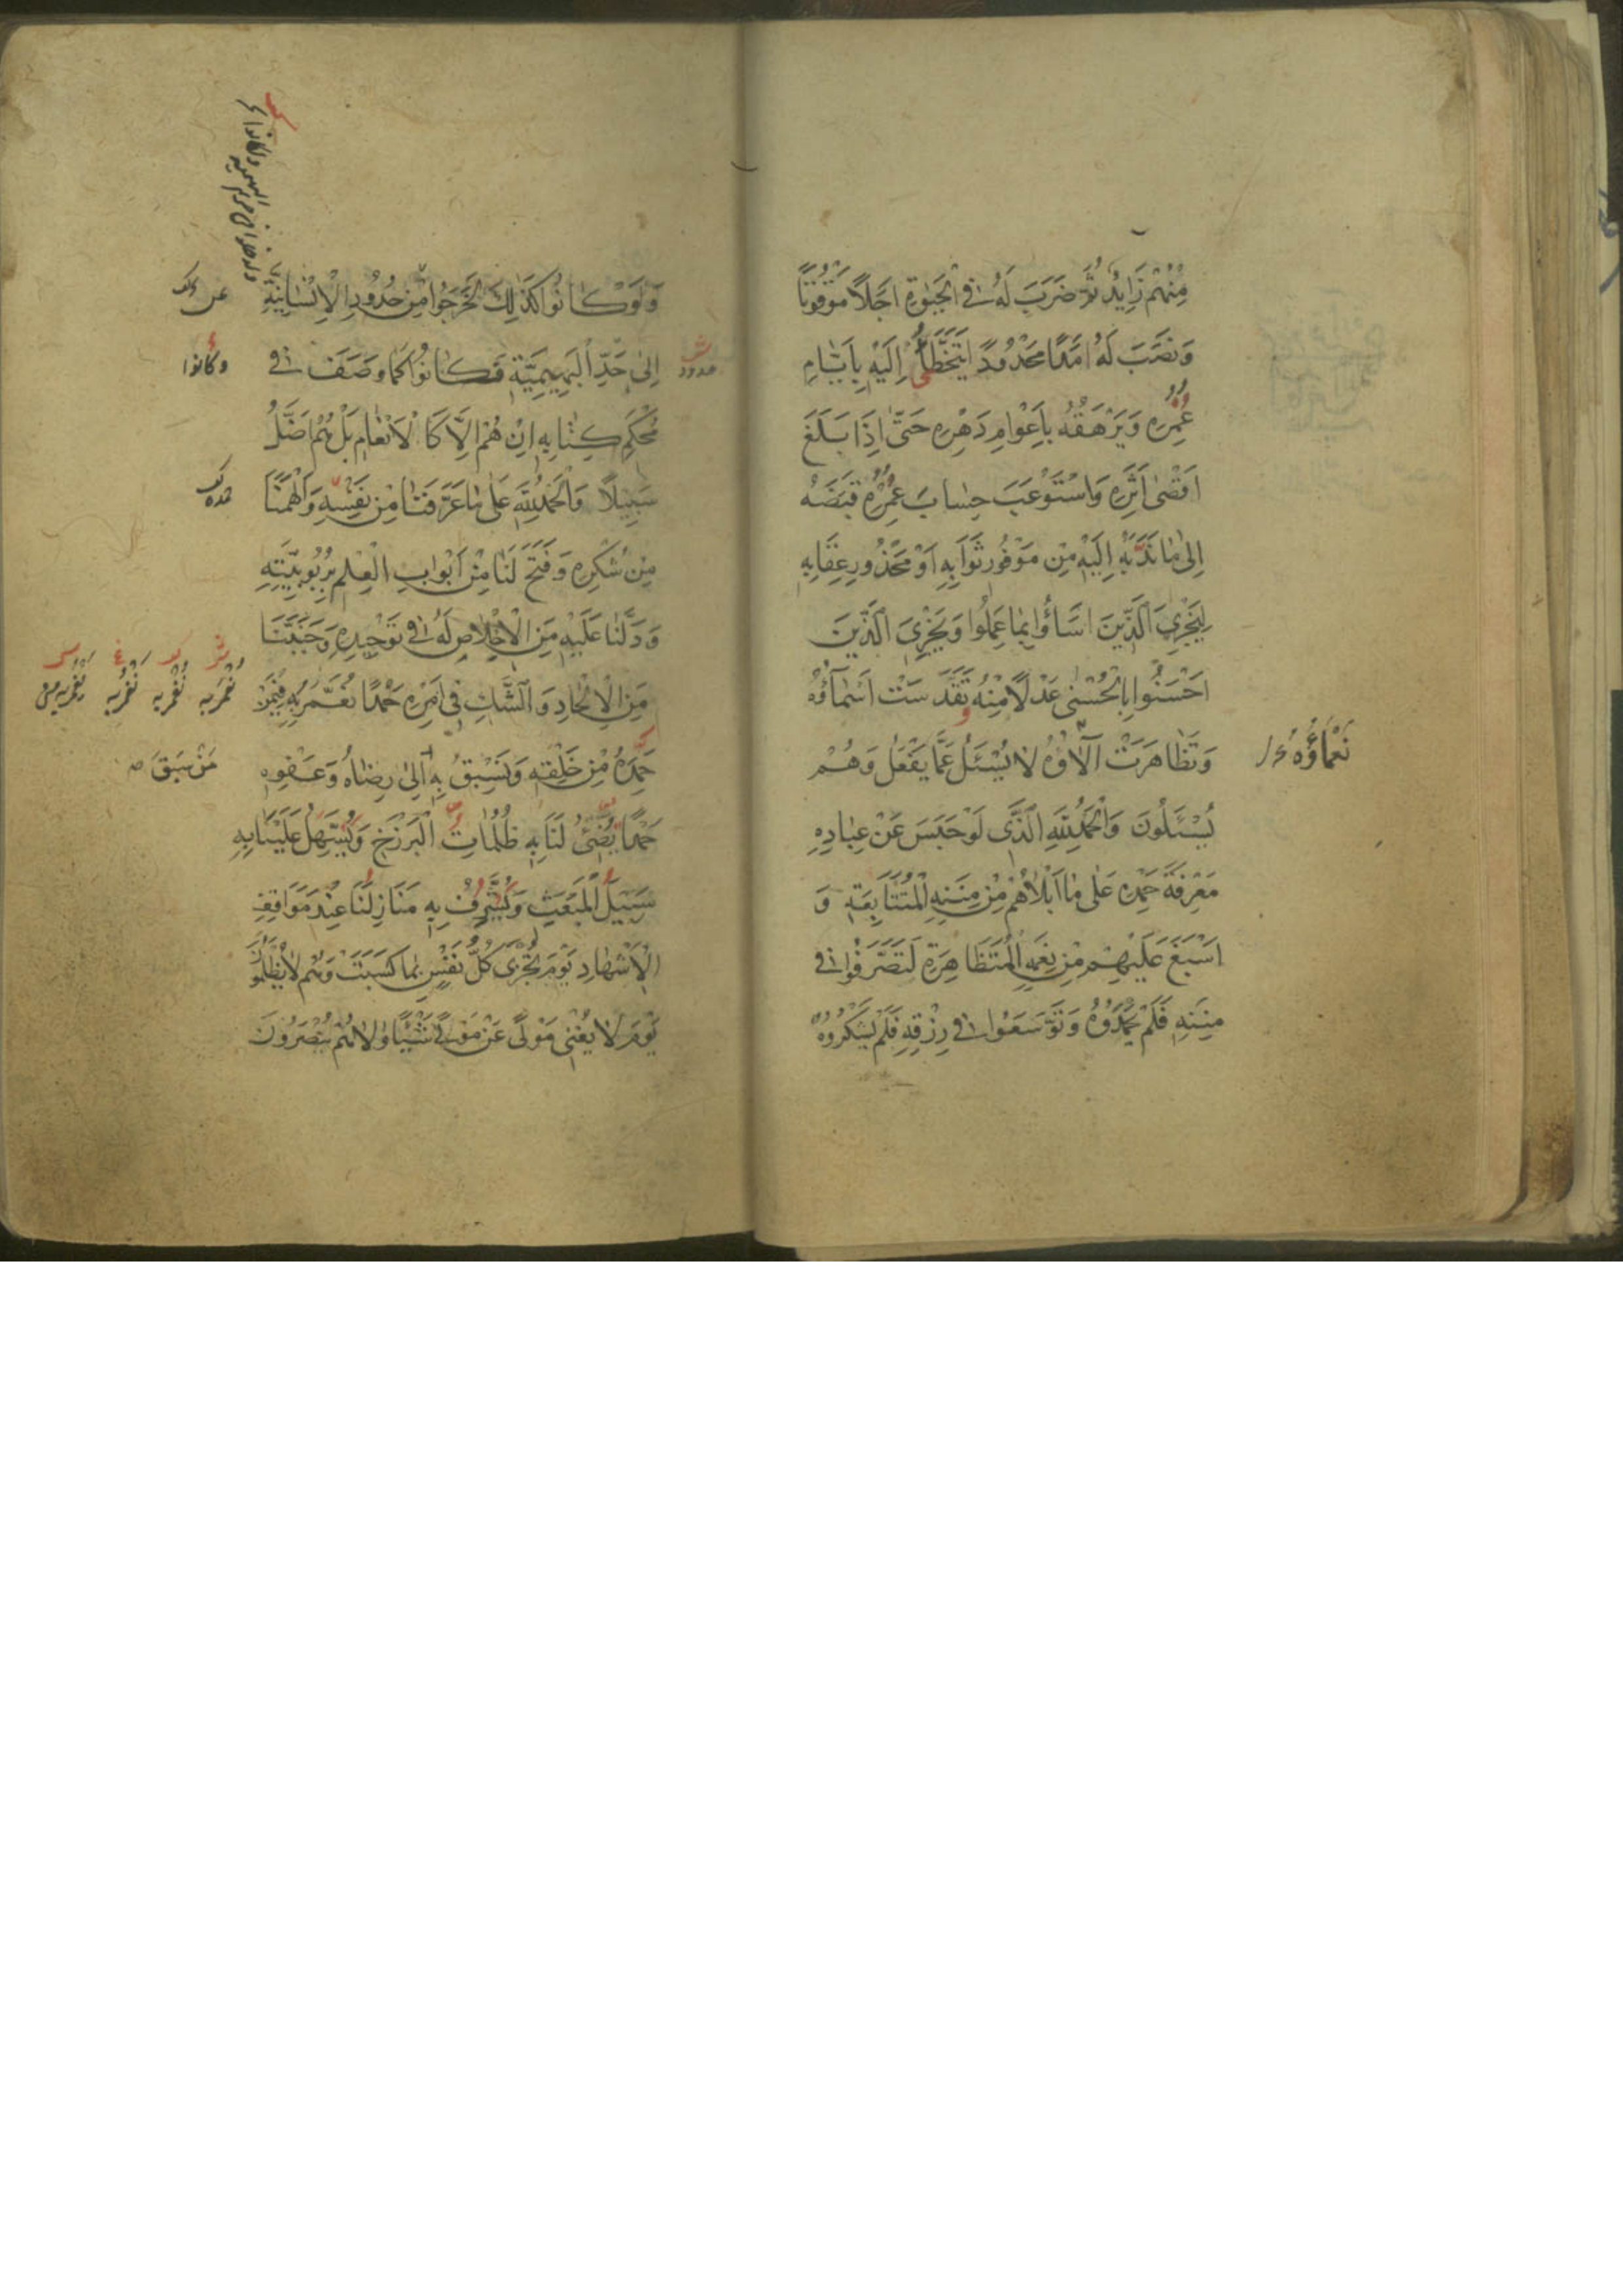 مِنْهُمْ زَايِدٌ ثُمَّ ضَرَبَ لَهُ فِي الْحَيٰوةِ اَجَلًا مَوْقُوتًا
وَنَصَبَ لَهُ اَمَدًا مَحْدُودًا يَتَخَطَّأُ اِلَيْهِ بِاَيَّامِ
عُمُرِهِ وَيَرْهَقُهُ بِاَعْوَامِ دَهْرِهِ حَتّٰى اِذَا بَلَغَ
اَقْصٰى اَثَرِهِ وَاسْتَوْعَبَ حِسَابَ عُمُرِهِ قَبَضَهُ
اِلٰى مَا نَدَبَهُ اِلَيْهِ مِنْ مَوْفُورِ ثَوَابِهِ اَوْ مَحْذُورِ عِقَابِهِ
لِيَجْزِيَ الَّذِينَ اَسَاؤُا بِمَا عَمِلُوا وَيَجْزِيَ الَّذِينَ
اَحْسَنُوا بِالْحُسْنٰى عَدْلًا مِنْهُ تَقَدَّسَتْ اَسْمَاؤُهُ
وَتَظَاهَرَتْ آلَاؤُهُ لَا يُسْئَلُ عَمَّا يَفْعَلُ وَهُمْ
نَعْمَاؤُهُ
يُسْئَلُونَ وَالْحَمْدُ لِلّٰهِ الَّذِي لَوْ حَبَسَ عَنْ عِبَادِهِ
مَعْرِفَةَ حَمْدِهِ عَلٰى مَا اَبْلَاهُمْ مِنْ مِنَنِهِ الْمُتَتَابِعَةِ وَ
اَسْبَغَ عَلَيْهِمْ مِنْ نِعَمِهِ الْمُتَظَاهِرَةِ لَتَصَرَّفُوا فِي
مِنَنِهِ فَلَمْ يَحْمَدُوهُ وَتَوَسَّعُوا فِي رِزْقِهِ فَلَمْ يَشْكُرُوهُ
وَلَوْ كَانُوا كَذٰلِكَ لَخَرَجُوا مِنْ حُدُودِ الْاِنْسَانِيَّةِ
عن
اِلٰى حَدِّ الْبَهِيمِيَّةِ فَكَانُوا كَمَا وَصَفَ فِي
حدود
وكانوا
مُحْكَمِ كِتَابِهِ اِنْ هُمْ اِلَّا كَالْاَنْعَامِ بَلْ هُمْ اَضَلُّ
سَبِيلًا وَالْحَمْدُ لِلّٰهِ عَلٰى مَا عَرَّفَنَا مِنْ نَفْسِهِ وَاَلْهَمَنَا
حمده
مِنْ شُكْرِهِ وَفَتَحَ لَنَا مِنْ اَبْوَابِ الْعِلْمِ بِرُبُوبِيَّتِهِ
وَدَلَّنَا عَلَيْهِ مِنَ الْاِخْلَاصِ لَهُ فِي تَوْحِيدِهِ وَجَنَّبَنَا
مِنَ الْاِلْحَادِ وَالشَّكِّ فِي اَمْرِهِ حَمْدًا نُعَمَّرُ بِهِ فِيمَنْ
حَمِدَهُ مِنْ خَلْقِهِ وَنَسْبِقُ بِهِ اِلٰى رِضَاهُ وَعَفْوِهِ
مَنْ سَبَقَ
حَمْدًا يُضِيءُ لَنَا بِهِ ظُلُمَاتِ الْبَرْزَخِ وَيُسَهِّلُ عَلَيْنَا بِهِ
سَبِيلَ الْمَبْعَثِ وَيُشَرِّفُ بِهِ مَنَازِلَنَا عِنْدَ مَوَاقِفِ
الْاَشْهَادِ يَوْمَ تُجْزٰى كُلُّ نَفْسٍ بِمَا كَسَبَتْ وَهُمْ لَا يُظْلَمُونَ
يَوْمَ لَا يُغْنِي مَوْلًى عَنْ مَوْلًى شَيْئًا وَلَا هُمْ يُنْصَرُونَ